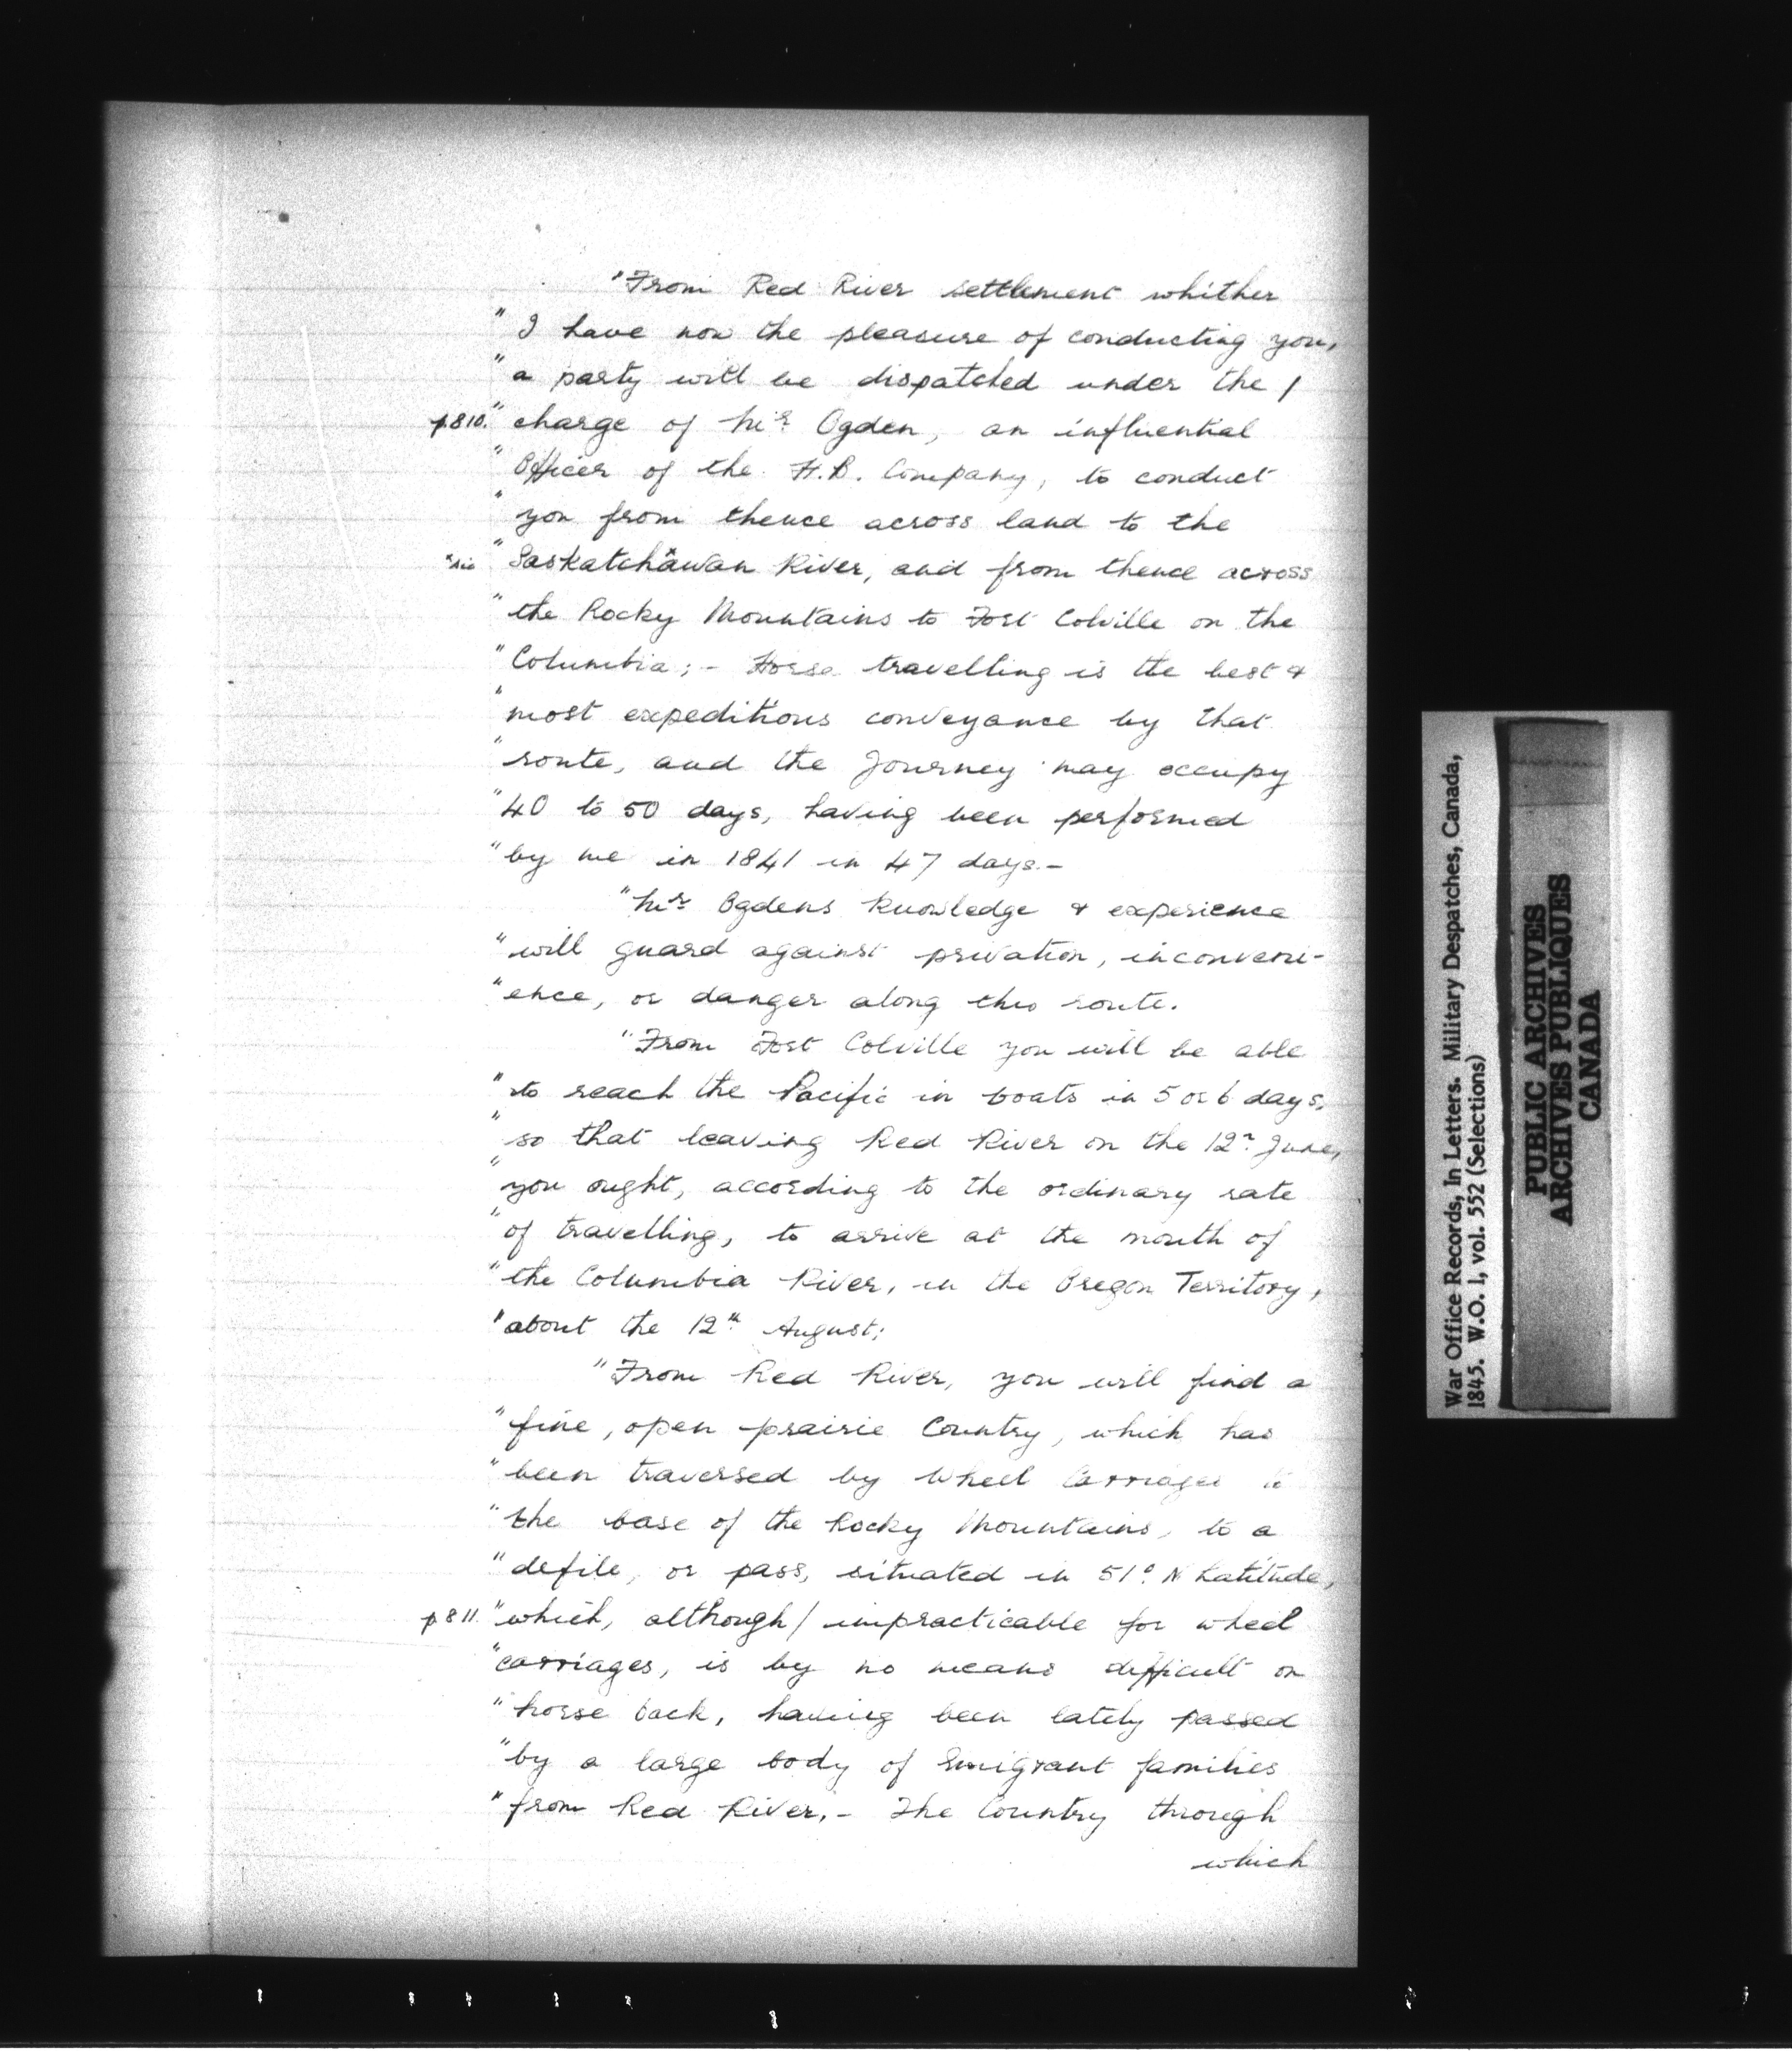 "From Red River settlement whither
" I have now the pleasure of conducting you,
" a party will be dispatched under the /
p.810. " charge of Mr. Ogden, an influential
" Officer of the H.B. Company, to conduct
" you from thence across land to the
"sic " Saskatchawan River, and from thence across
" the Rocky Mountains to Fort Colville on the
" Columbia; - Horse travelling is the best &
" most expeditious conveyance by that
" route, and the Journey may occupy
" 40 to 50 days, having been performed
" by me in 1841 in 47 days. -
"Mr. Ogdens knowledge & experience
" will guard against privation, inconveni-
" ence, or danger along this route.
"From Fort Colville you will be able
" to reach the Pacific in boats in 5 or 6 days,
" so that leaving Red River on the 12th June,
" you ought, according to the ordinary rate
" of travelling, to arrive at the mouth of
" the Columbia River, in the Oregon Territory,
" about the 12th August;
"From Red River, you will find a
" fine, open prairie Country, which has
" been traversed by Wheel Carriages to
" the base of the Rocky Mountains, to a
" defile, or pass, situated in 51° N Latitude,
p 811. " which, although / impracticable for wheel
" carriages, is by no means difficult on
" horse back, having been lately passed
" by a large body of Emigrant families
" from Red River. - The Country through
which
War Office Records, In Letters. Military Despatches, Canada,
1845. W.O. 1, vol. 552 (Selections)
PUBLIC ARCHIVES
ARCHIVES PUBLIQUES
CANADA